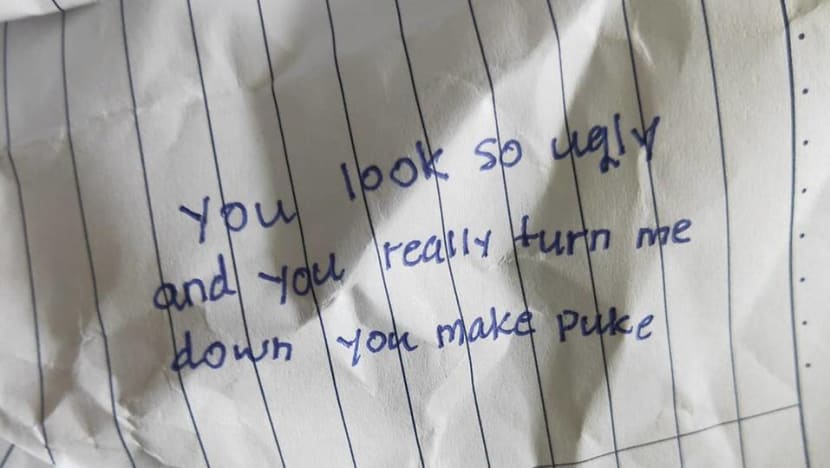 you look so ugly
and you really turn me
down you make puke